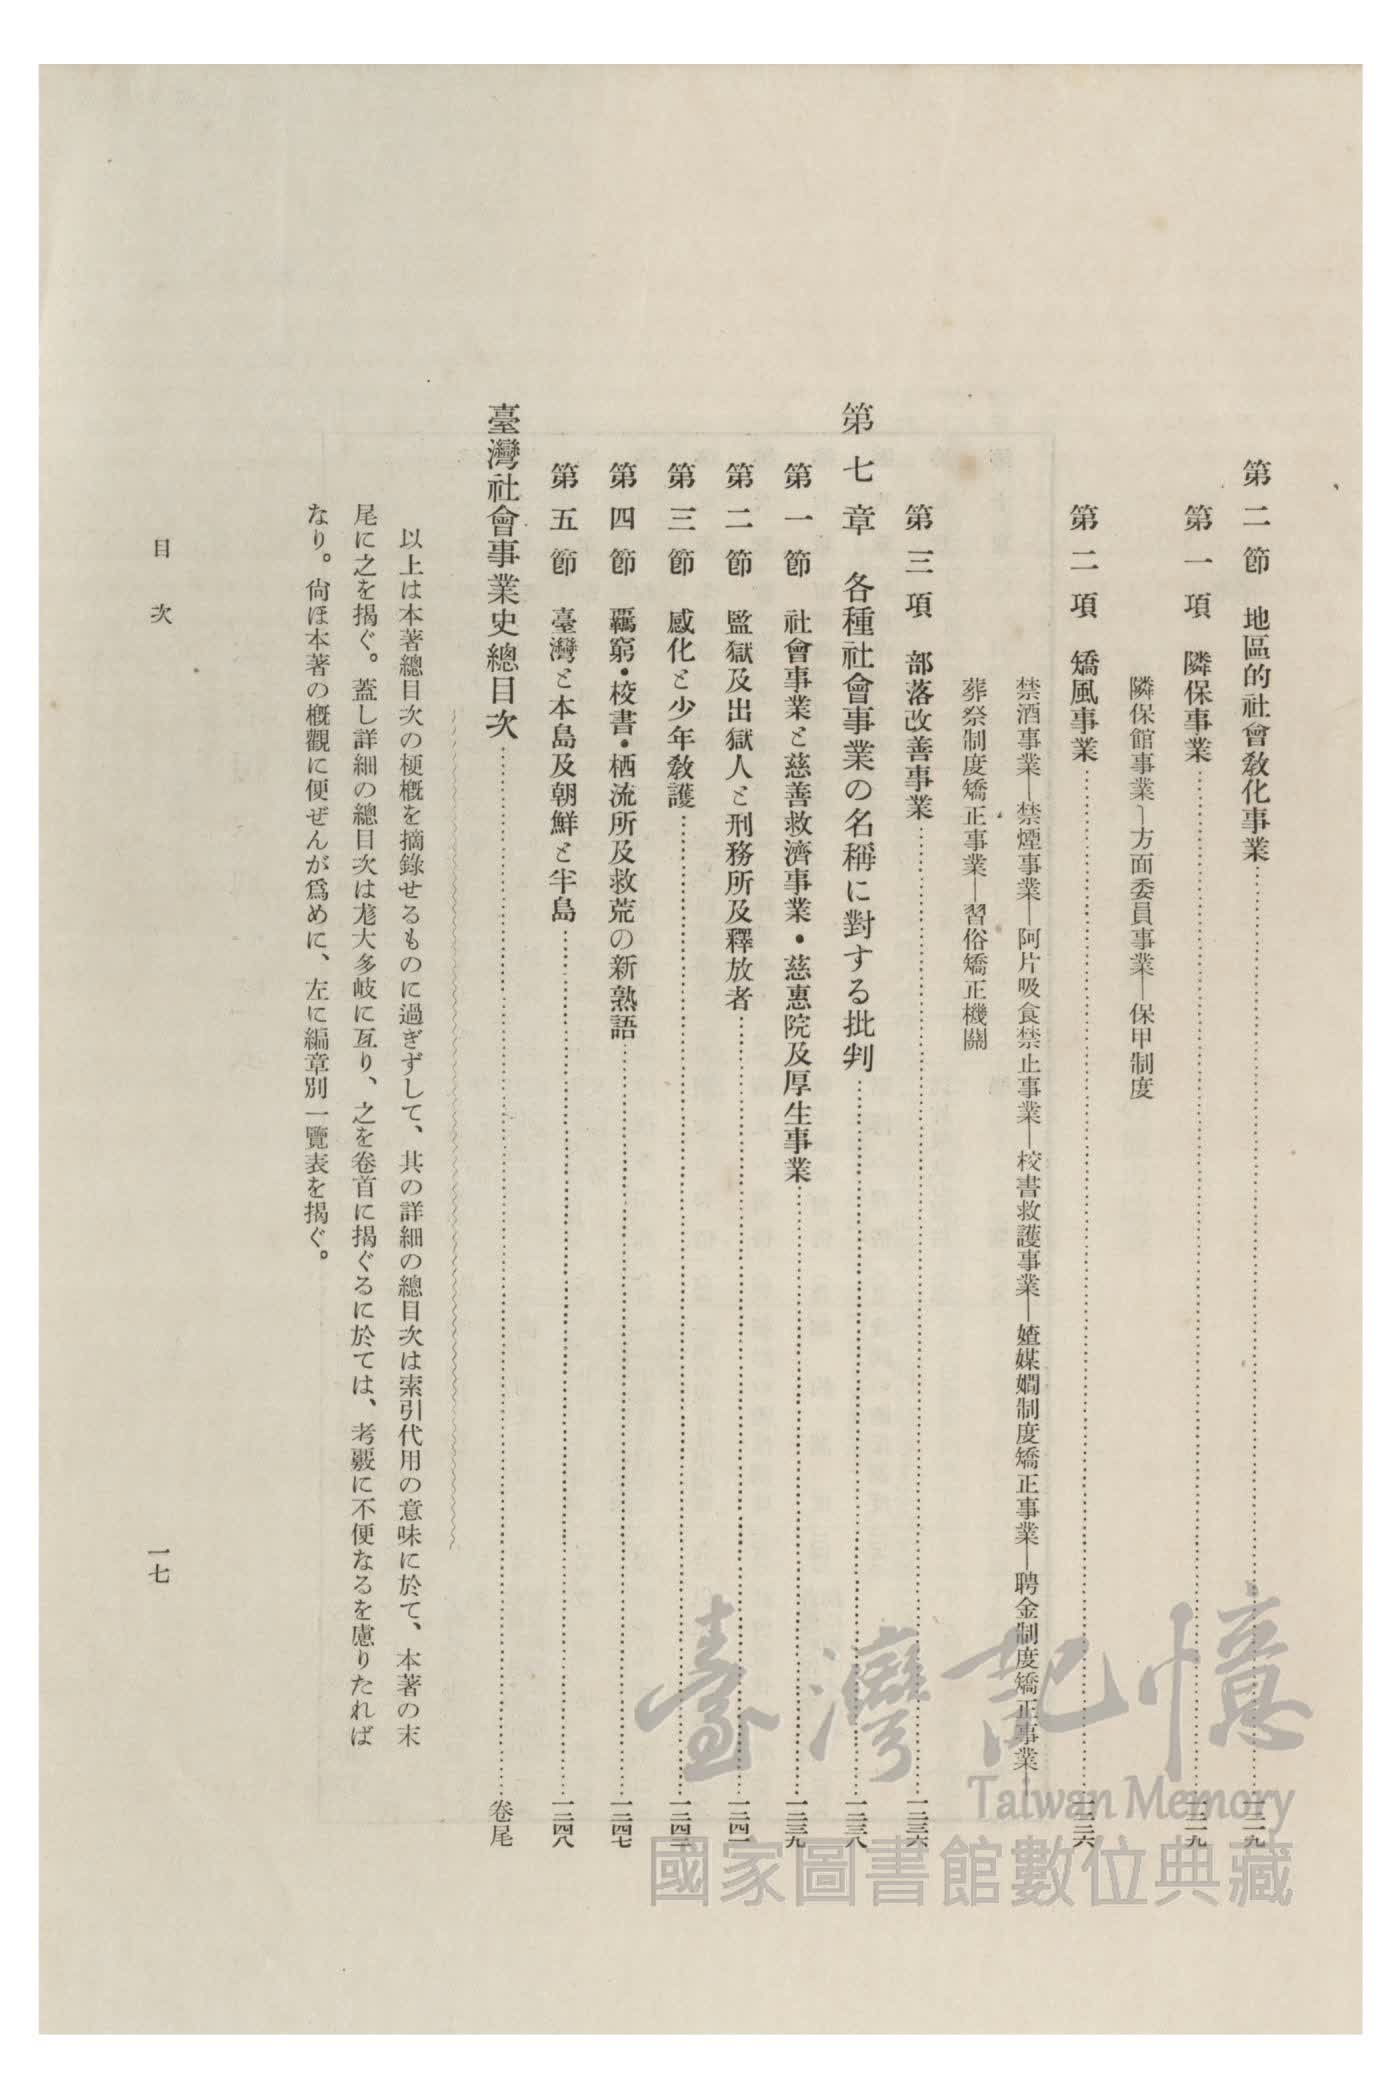 第二節　地區的社會教化事業……一二一九
第一項　隣保事業……一二一九
隣保館事業―方面委員事業―保甲制度
第二項　矯風事業……一二二六
禁酒事業―禁煙事業―阿片吸食禁止事業―校書救護事業―媎媒嫺制度矯正事業―聘金制度矯正事業―
葬祭制度矯正事業―習俗矯正機關
第三項　部落改善事業……一二三六
第七章　各種社會事業の名稱に對する批判……一二三八
第一節　社會事業と慈善救濟事業・慈惠院及厚生事業……一二三九
第二節　監獄及出獄人と刑務所及釋放者……一二四一
第三節　感化と少年教護……一二四三
第四節　羈窮・校書・栖流所及救荒の新熟語……一二四七
第五節　臺灣と本島及朝鮮と半島……一二四八
臺灣社會事業史總目次……卷尾
以上は本著總目次の梗概を摘錄せるものに過ぎずして、其の詳細の總目次は索引代用の意味に於て、本著の末
尾に之を揭ぐ。蓋し詳細の總目次は尨大多岐に亙り、之を卷首に揭ぐるに於ては、考覈に不便なるを慮りたれば
なり。尙ほ本著の概觀に便ぜんが爲めに、左に編章別一覽表を揭ぐ。
目次
一七
臺灣記憶
Taiwan Memory
國家圖書館數位典藏